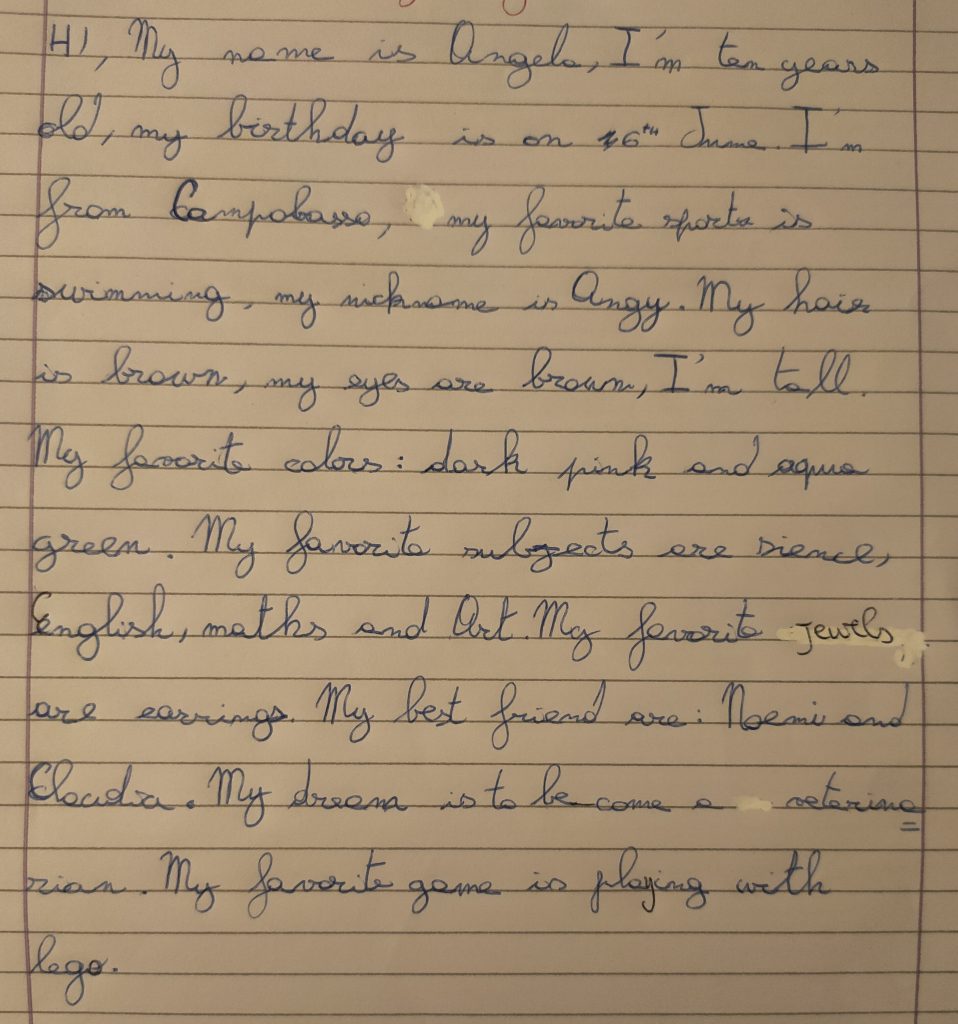 HI, My name is Angela, I'm ten years
old, my birthday is on 16th June. I'm
from Campobasso, my favorite sports is
swimming, my nickname is Angy. My hair
is brown, my eyes are brown, I'm tall.
My favorite colors: dark pink and aqua
green. My favorite subjects are sience,
English, maths and Art. My favorite jewels,
are earrings. My best friend are: Noemi and
Claudia. My dream is to be come a veterina=
rian. My favorite game is playing with
lego.